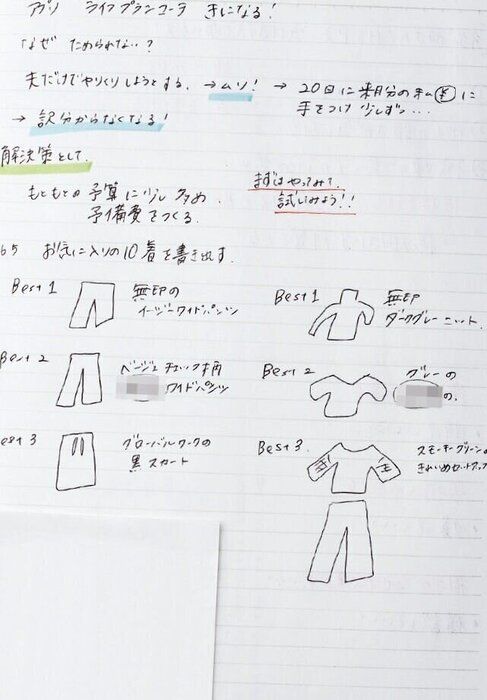 アプリ ライフプランコーデ きになる!
なぜ ためられない..?
夫だけでやりくりしようとする. → ムリ! → 20日に来月分の私¥に
手をつけ 少しずつ...
→ 訳分からなくなる!
解決策として.
もともとの予算に少し多め.
予備費をつくる.
まずはやってみて.
試してみよう!!
65 お気に入りの10着を書き出す.
Best 1 無印の
イージーワイドパンツ
Best 1 無印
ダークグレーニット.
Best 2 ベージュチェック柄
ワイドパンツ
Best 2 グレーの
の.
Best 3 グローバルワークの
黒スカート
Best 3 スモーキーグリーンの
きれいめセットアップ